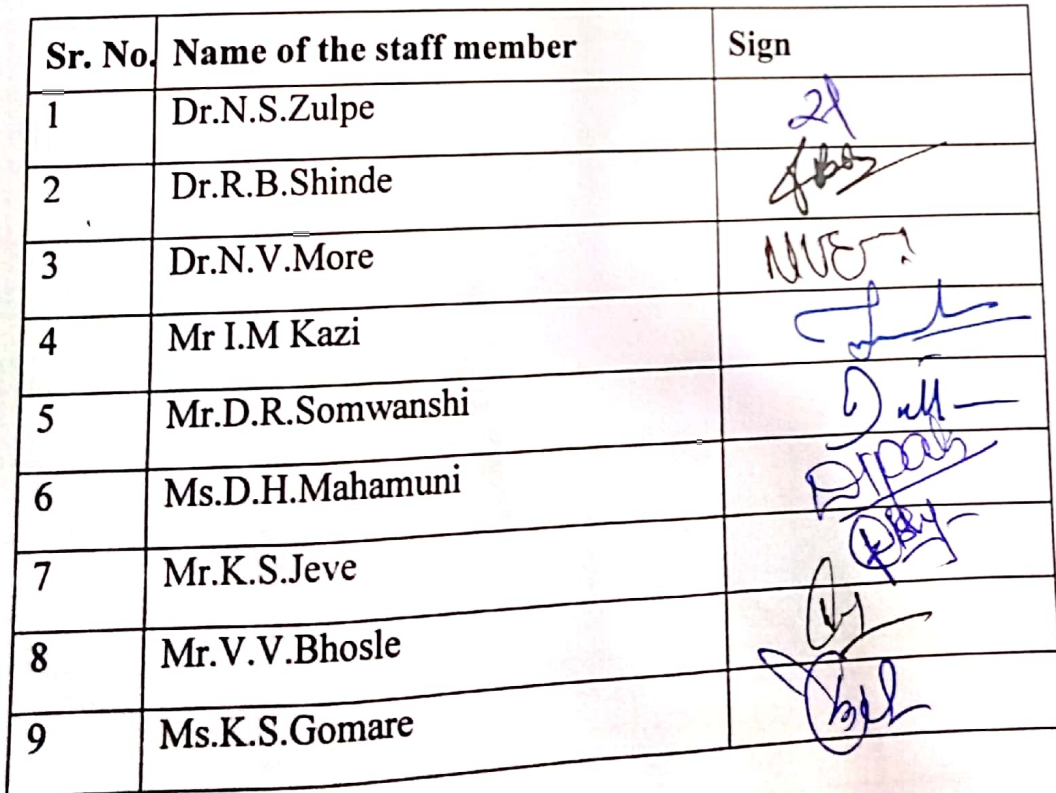 Sr. No. Name of the staff member Sign
1 Dr.N.S.Zulpe
2 Dr.R.B.Shinde
3 Dr.N.V.More
4 Mr I.M Kazi
5 Mr.D.R.Somwanshi
6 Ms.D.H.Mahamuni
7 Mr.K.S.Jeve
8 Mr.V.V.Bhosle
9 Ms.K.S.Gomare